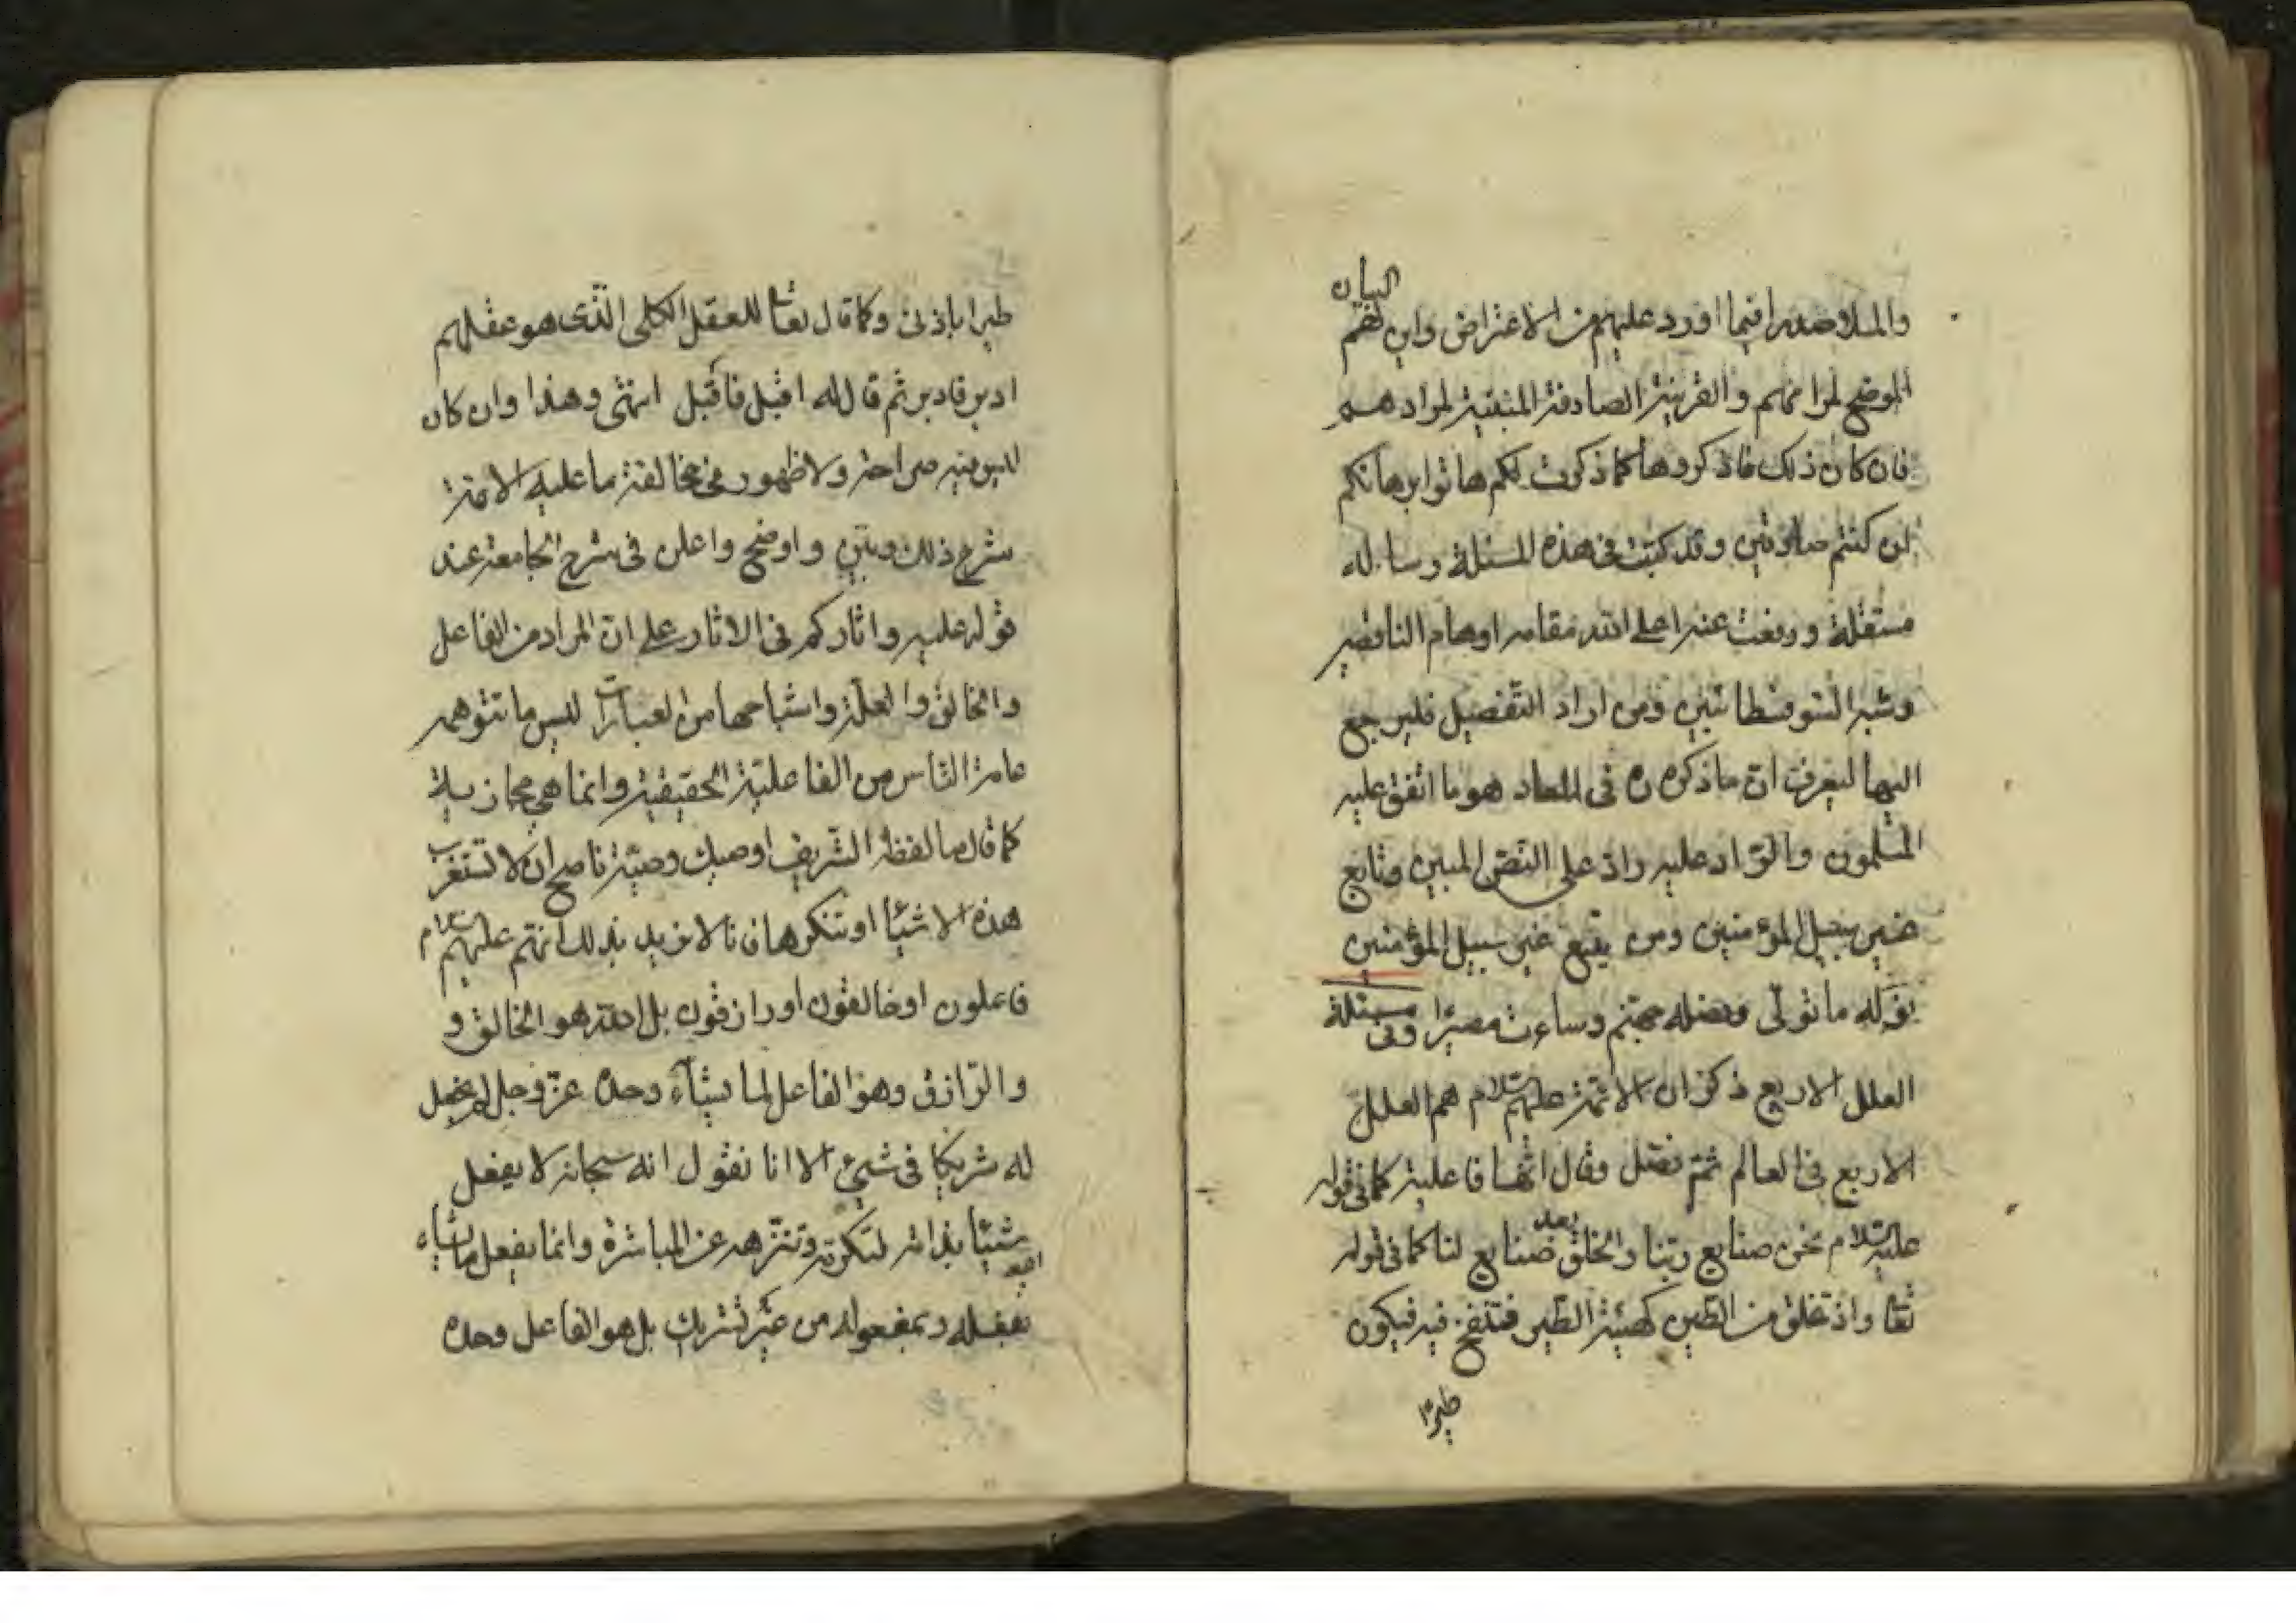 والملا صدرا فيما اورد عليهم من الاعتراض واين لهم البيان
الموضح لمرامهم والقرينة الصادقة المبينة لمرادهم
فان كان ذلك فاذكروها كما ذكرت لكم هاتوا برهانكم
ان كنتم صادقين وقد كتبت في هذه المسئلة رسالة
مستقلة ورفعت عنه اعلى الله مقامه اوهام الناقصين
وشبه السوفسطائيين ومن اراد التفصيل فليرجع
اليها ليعرف ان ما ذكره ره في المعاد هو ما اتفق عليه
المسلمون والراد عليه راد على النص المبين وتابع
غير سبيل المؤمنين ومن يتبع غير سبيل المؤمنين
نوله ما تولى ونصله جهنم وساءت مصيرا وفي مسئلة
العلل الاربع ذكر ان الائمة عليهم السلام هم العلل
الاربع في العالم ثم فصل وقال انها فاعلية كما في قوله
عليه السلام نحن صنايع ربنا والخلق بعد صنايع لنا كما في قوله
تعا واذ تخلق من الطين كهيئة الطير فتنفخ فيه فيكون
طيرا
طيرا باذني وكما قال تعا للعقل الكلي الذي هو عقلهم
ادبر فادبر ثم قال له اقبل فاقبل انتهى وهذا وان كان
ليس فيه صراحة ولا ظهور في مخالفة ما عليه الامة
شرح ذلك وبين واوضح واعلن في شرح الجامعة عند
قوله عليه واثاركم في الاثار على ان المراد من الفاعل
والخالق والعلة واشباهها من العبارات ليس ما تتوهمه
عامة الناس من الفاعلية الحقيقية وانما هي مجازية
كما قال ما لفظه الشريف اوصيك وصية ناصح ان لا تستغرب
هذه الاشيا او تنكرها فانا لا نريد بذلك انهم عليهم السلام
فاعلون او خالقون او رازقون بل الله هو الخالق و
والرازق وهو الفاعل لما يشاء وحده عز وجل لم يجعل
له شريكا في شيئ الا انا نقول انه سبحانه لا يفعل
شيئا بذاته لتكرمه وتنزهه عن المباشرة وانما يفعل ما يشاء
بفعله وبمفعوله من غير تشريك بل هو الفاعل وحده